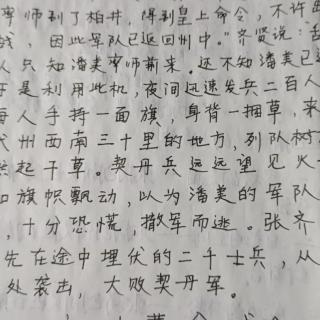 率师到了柏井，得到皇上命令，不许出
战，因此军队已返回州中。"齐贤说：敌
人只知潘美率师前来。还不知潘美已退
于是利用此机，夜间迅速发兵二百人
每人手持一面旗，身背一捆草，来
代州西南三十里的地方，列队树
燃起干草。契丹兵远远望见火
和旗帜飘动，以为潘美的军队
，十分恐慌，撤军而逃。张齐
先在途中埋伏的二千士兵，从
处袭击，大败契丹军。